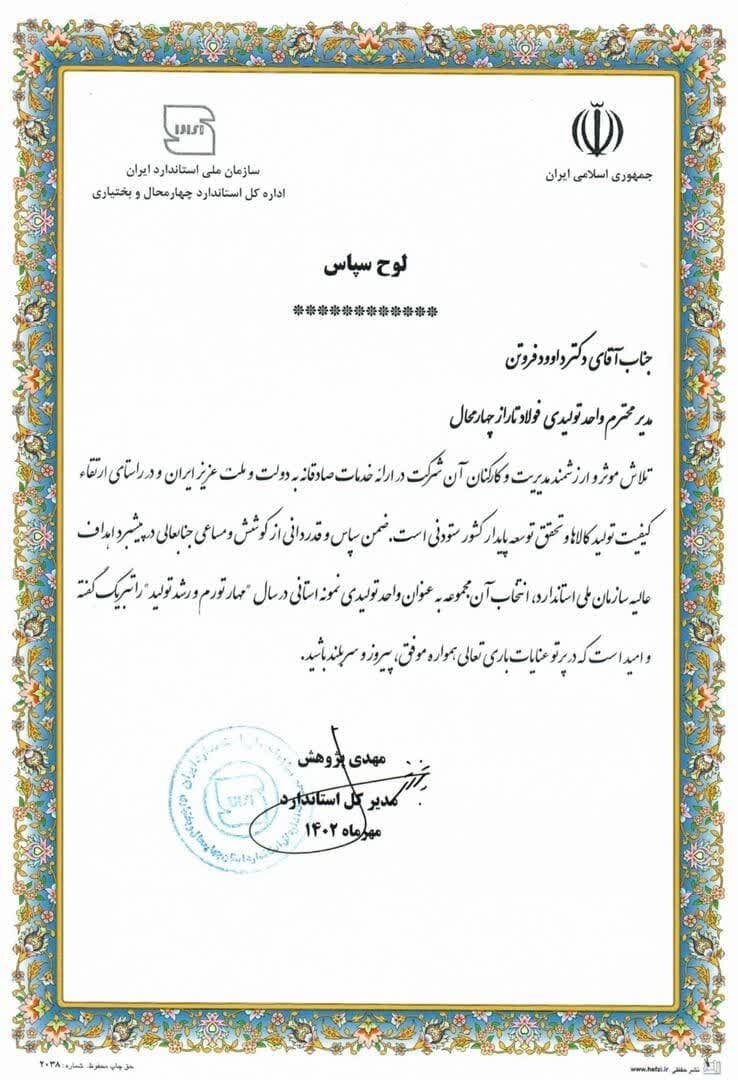 جمهوری اسلامی ایران
سازمان ملی استاندارد ایران
اداره کل استاندارد چهارمحال و بختیاری
لوح سپاس
************
جناب آقای دکتر داوود فروتن
مدیر محترم واحد تولیدی فولاد تاراز چهارمحال
تلاش موثر و ارزشمند مدیریت و کارکنان آن شرکت در ارائه خدمات صادقانه به دولت و ملت عزیز ایران و در راستای ارتقاء
کیفیت تولید کالاها و تحقق توسعه پایدار کشور ستودنی است. ضمن سپاس و قدردانی از کوشش و مساعی جنابعالی در پیشبرد اهداف
عالیه سازمان ملی استاندارد، انتخاب آن مجموعه به عنوان واحد تولیدی نمونه استانی در سال "مهار تورم و رشد تولید" را تبریک گفته
و امید است که در پرتو عنایات باری تعالی همواره موفق، پیروز و سربلند باشید.
مهدی پژوهش
مدیر کل استاندارد
مهرماه ۱۴۰۲
نشر حفظی www.hefzi.ir
حق چاپ محفوظ. شماره: ۲۰۳۸